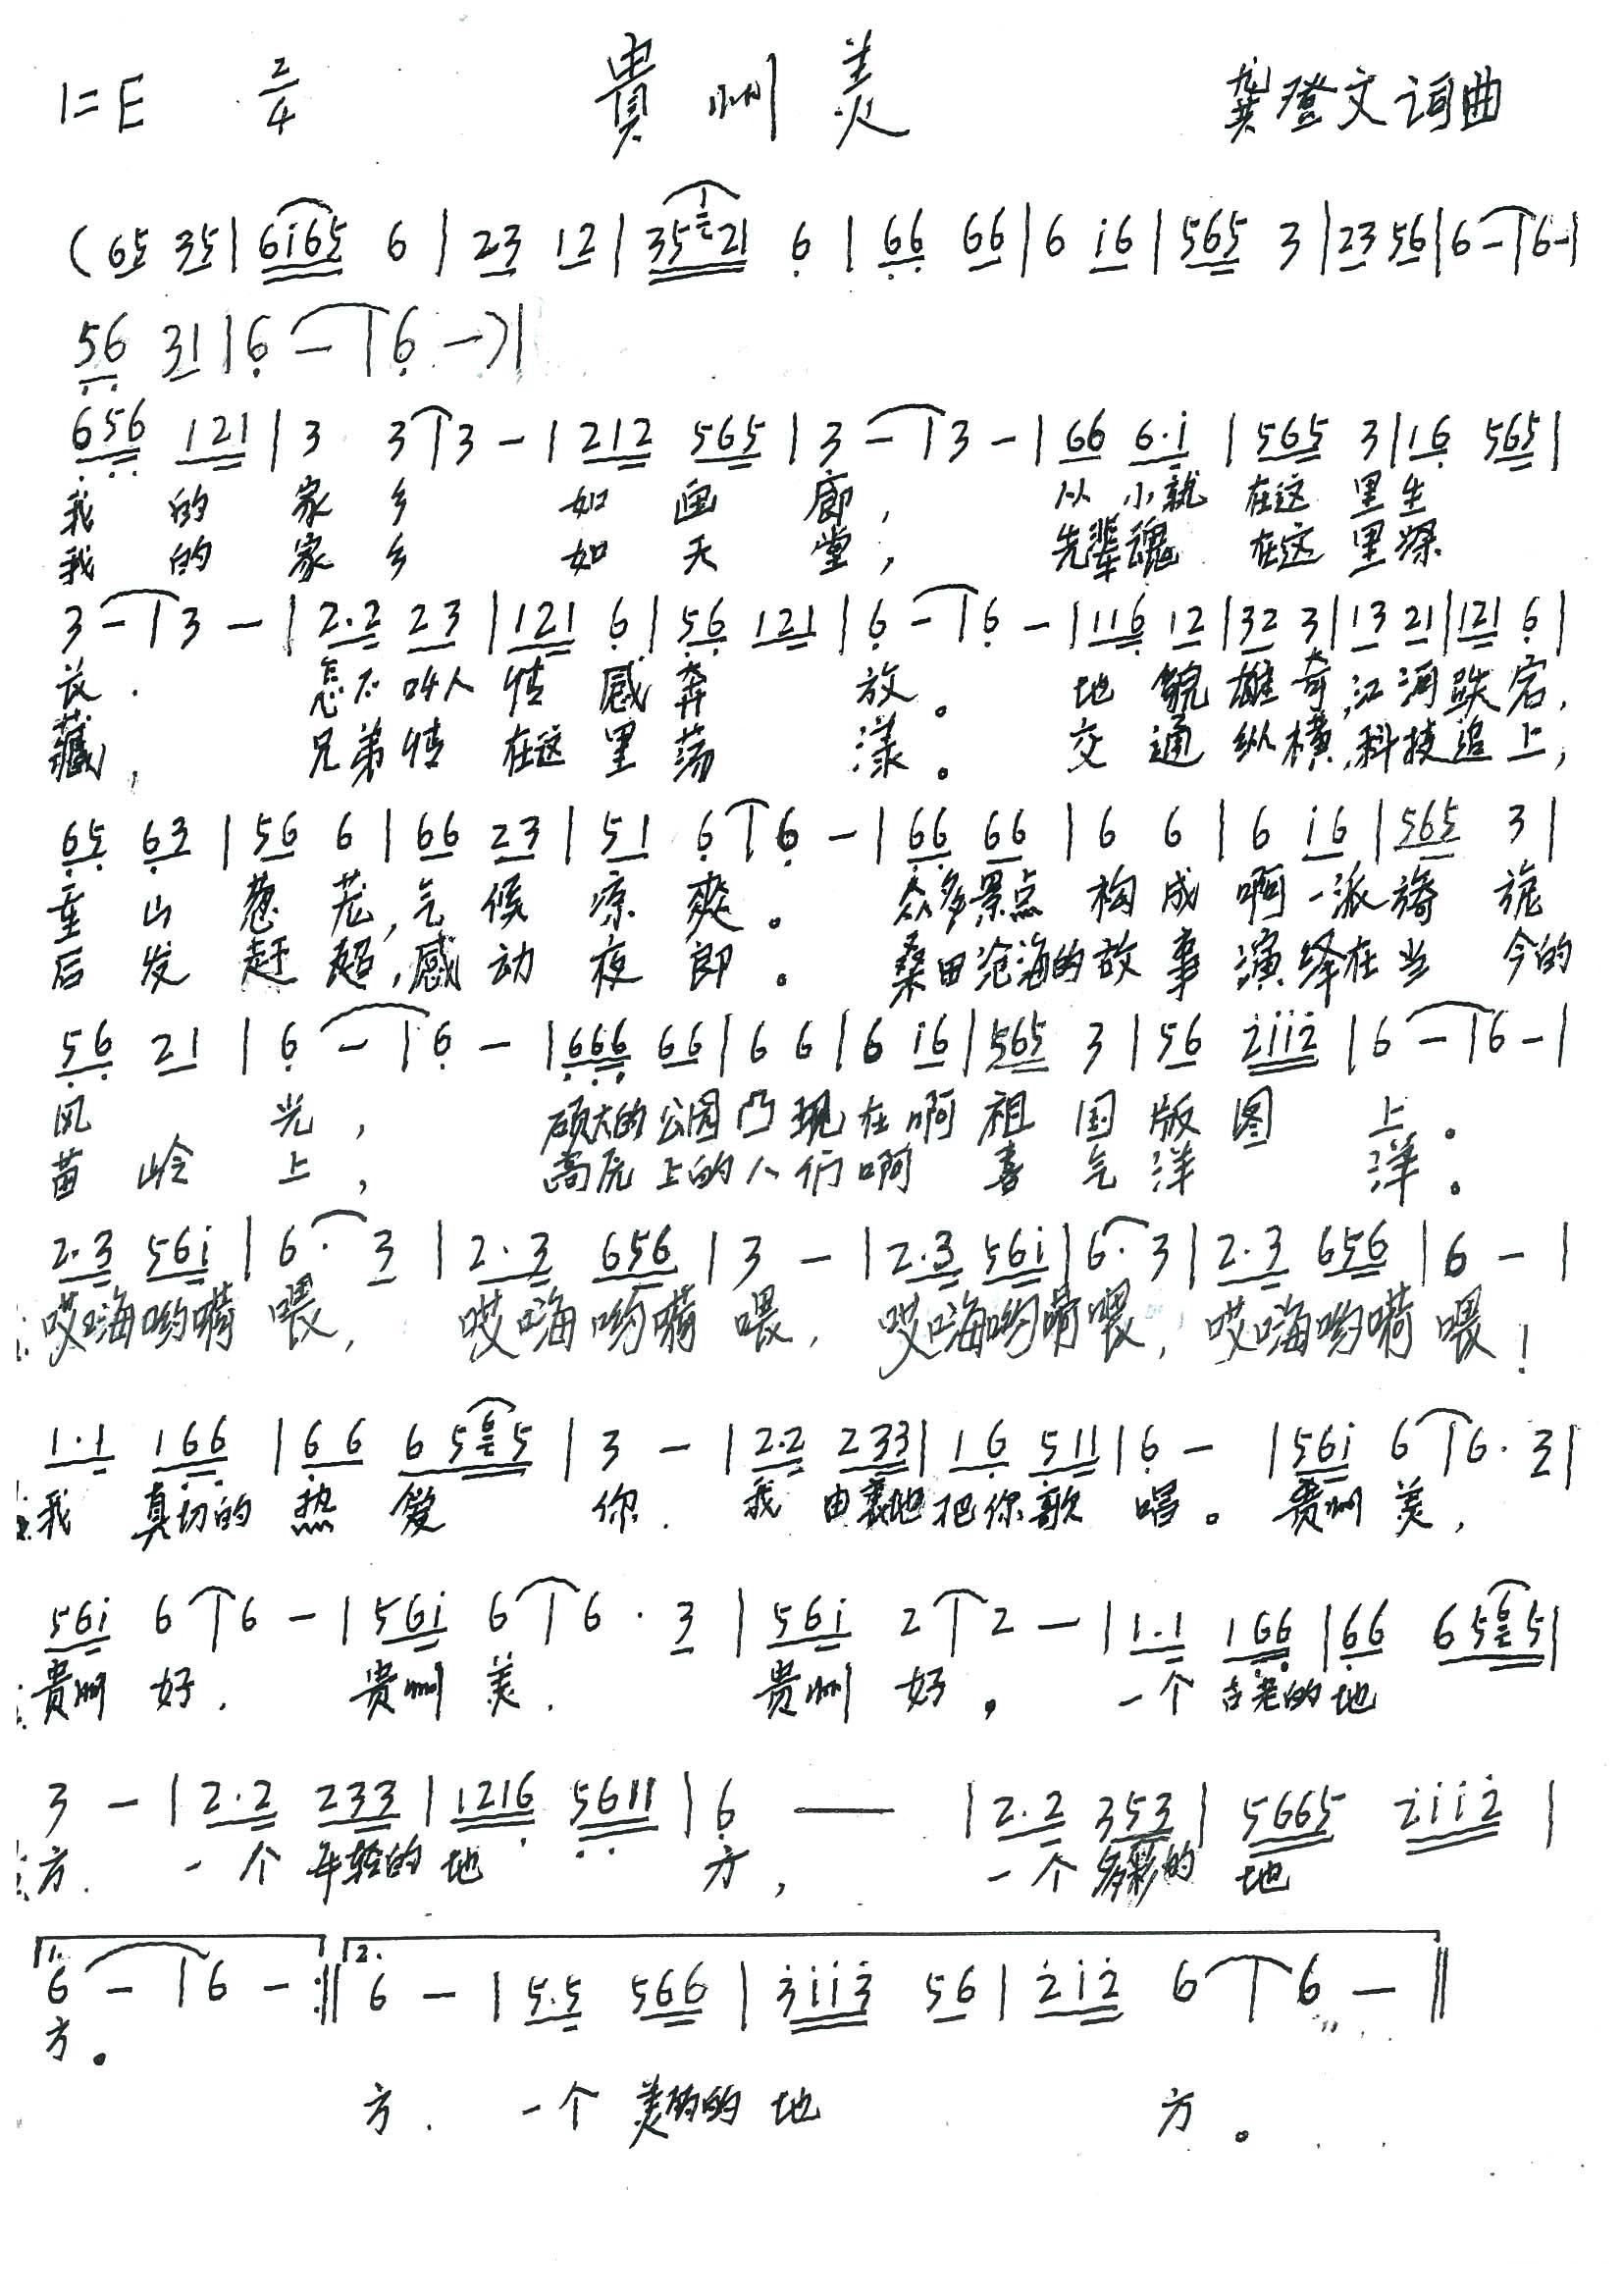 1=E 2/4 貴州美 龚登文词曲
(65 35|6i65 6|23 12|35121 6|66 66|6 i6|565 3|23 56|6-|6-|
56 31|6-|6-)|
656 121|3 3|3-|212 565|3-|3-|66 6·i|565 3|16 565|
我的家乡 如画廊, 从小就在这里生
我的家乡 如天堂, 先辈魂在这里深
3-|3-|2·2 23|121 6|56 121|6-|6-|116 12|32 3|13 21|121 6|
长. 怎不叫人情感奔放。地貌雄奇,江河跌宕,
藏, 兄弟情在这里荡漾。交通纵横,科技追上,
65 63|56 6|66 23|51 6|6-|66 66|6 6|6 i6|565 3|
重山葱茏,气候凉爽。众多景点构成啊一派旖旎
后发赶超,感动夜郎。桑田沧海的故事演绎在当今的
56 21|6-|6-|666 66|6 6|6 i6|565 3|56 2ii2|6-|6-|
风光, 硕大的公园凸现在啊祖国版图上。
苗岭上, 高原上的人们啊喜气洋洋。
2·3 56i|6· 3|2·3 656|3-|2·3 56i|6· 3|2·3 656|6-|
哎嗨哟嗬喂, 哎嗨哟嗬喂, 哎嗨哟嗬喂, 哎嗨哟嗬喂!
1·1 166|66 6565|3-|2·2 233|16 511|6-|56i 6|6· 3|
我真切的热爱你. 我由衷地把你歌唱。贵州美,
56i 6|6-|56i 6|6· 3|56i 2|2-|1·1 166|66 6565|
贵州好. 贵州美. 贵州好, 一个古老的地
3-|2·2 233|1216 5611|6 —|2·2 353|5665 2ii2|
方. 一个年轻的地方, 一个多彩的地
1. 6-|6-:‖ 2. 6-|5·5 566|3ii3 56|2i2 6|6-‖
方。
方. 一个美丽的地方。